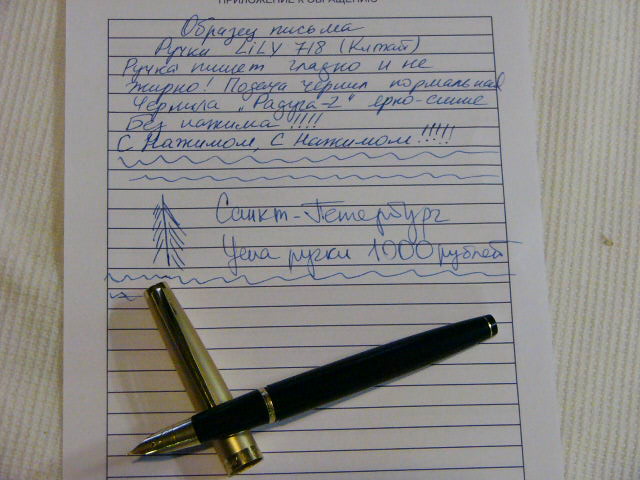 ПРИЛОЖЕНИЕ К ОБРАЩЕНИЮ
Образец письма
Ручки LiLY 718 (Китай)
Ручка пишет гладко и не
жирно! Подача чернил нормальная
Чернила „Радуга-2" ярко-синие
Без нажима !!!!
С Нажимом, С Нажимом !!!!!
Санкт-Петербург
Цена ручки 1000 рублей